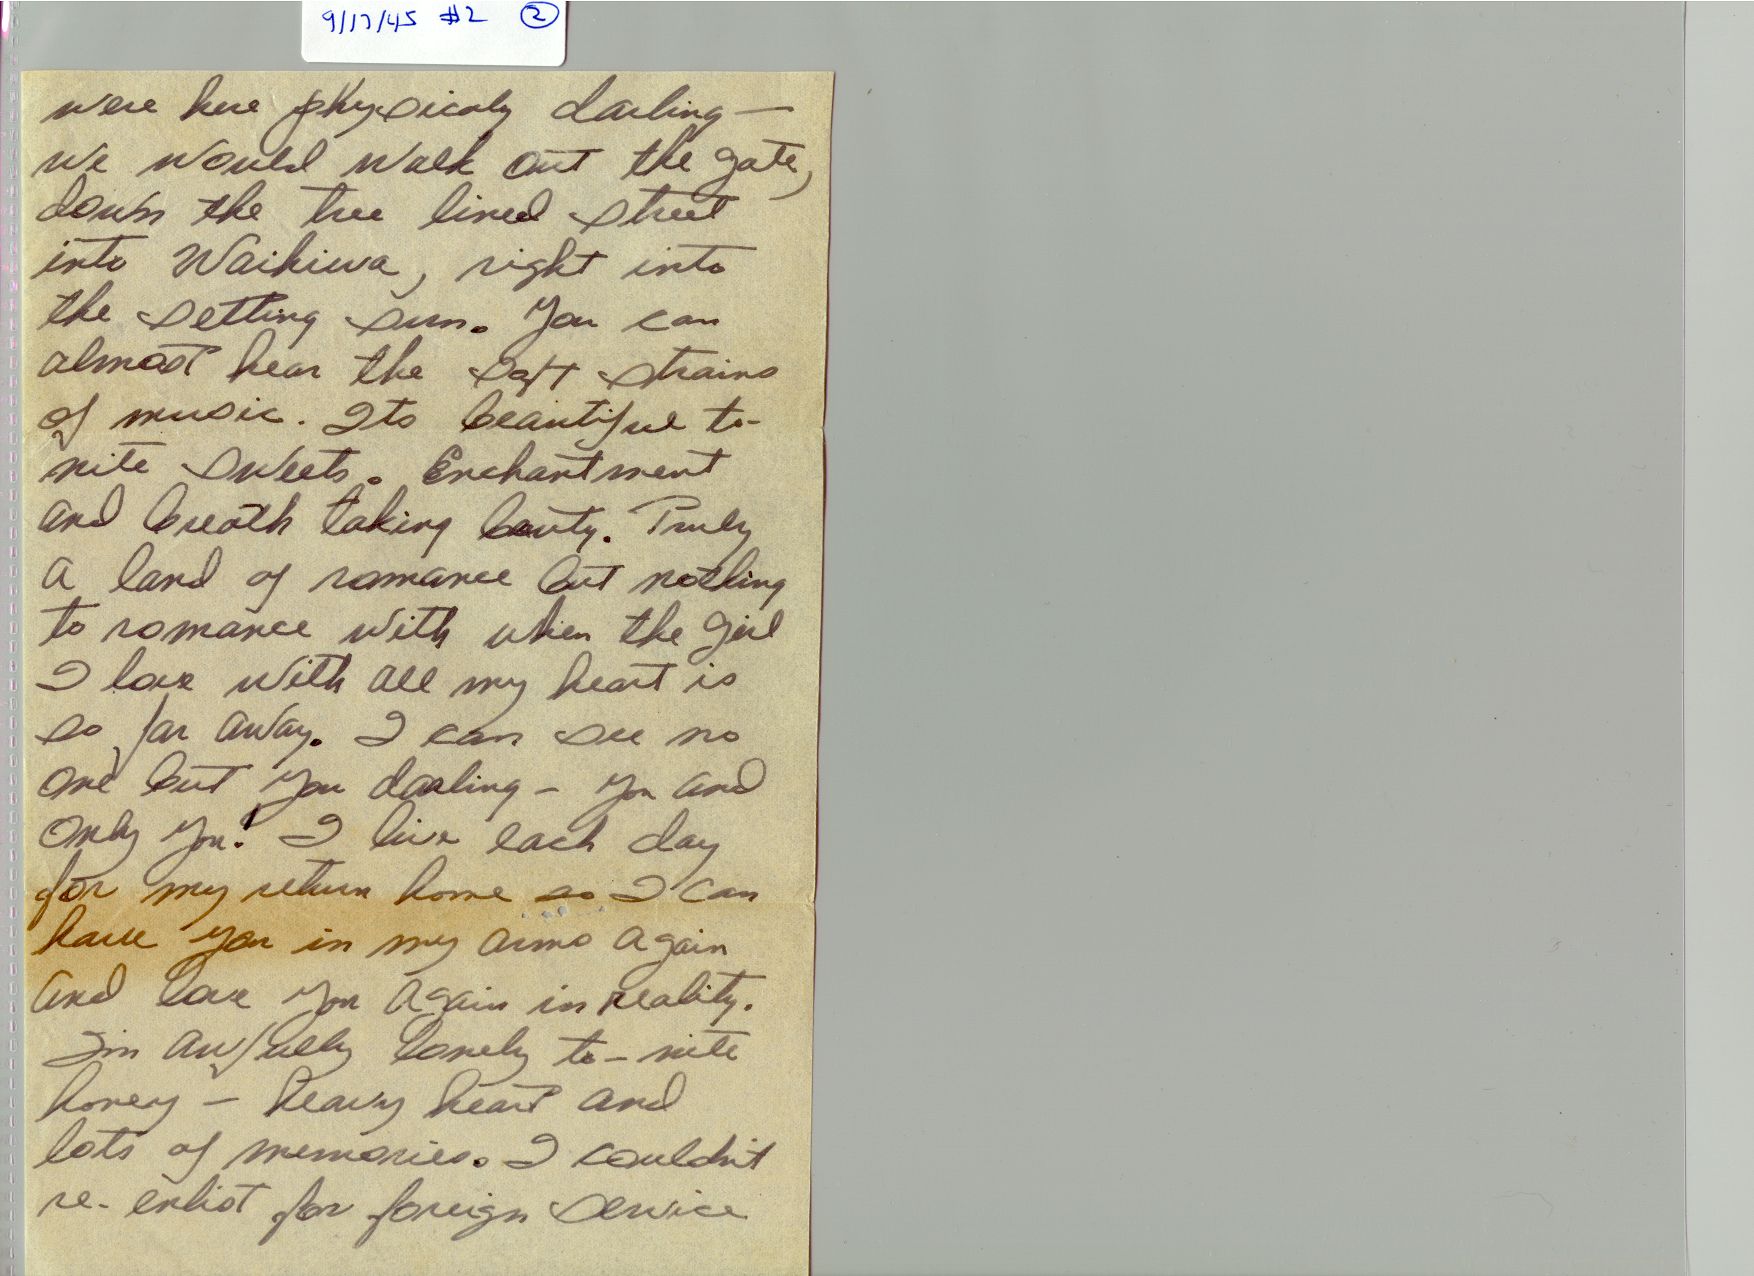 9/17/45 #2 2
were here physicaly darling —
we would walk out the gate,
down the tree lined street
into Waikiwa, right into
the setting sun. You can
almost hear the soft strains
of music. Its beautiful to-
nite sweets. Enchantment
and breath taking beauty. Truly
a land of romance but nothing
to romance with when the girl
I love with all my heart is
so far away. I can see no
one but you darling - you and
only you! I live each day
for my return home so I can
have you in my arms again
and love you again in reality.
Im awfully lonely to-nite
honey - heavy heart and
lots of memories. I couldn't
re-enlist for foreign service